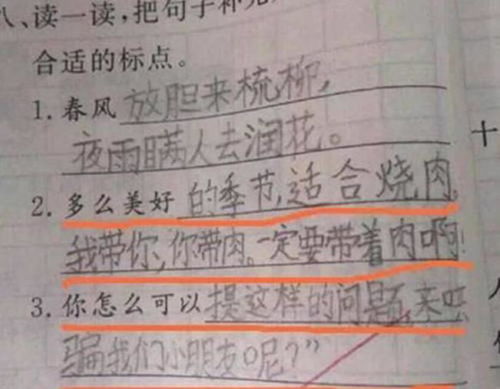 八、读一读,把句子补充
合适的标点。
1. 春风 放胆来梳柳,
夜雨瞒人去润花。
2. 多么美好 的季节,适合烧肉。
我带你,你带肉。一定要带着肉啊!
3. 你怎么可以 提这样的问题,来
骗我们小朋友呢?”
十